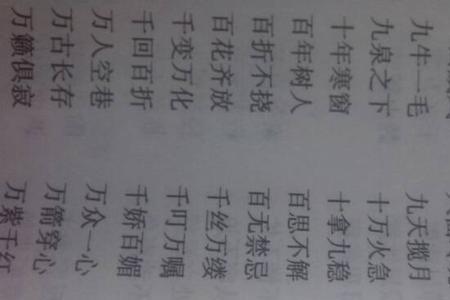 九牛一毛 九天揽月
九泉之下 十万火急
十年寒窗 十拿九稳
百年树人 百思不解
百折不挠 百无禁忌
百花齐放 千丝万缕
千变万化 千叮万嘱
千回百折 千娇百媚
万人空巷 万众一心
万古长存 万箭穿心
万籁俱寂 万紫千红